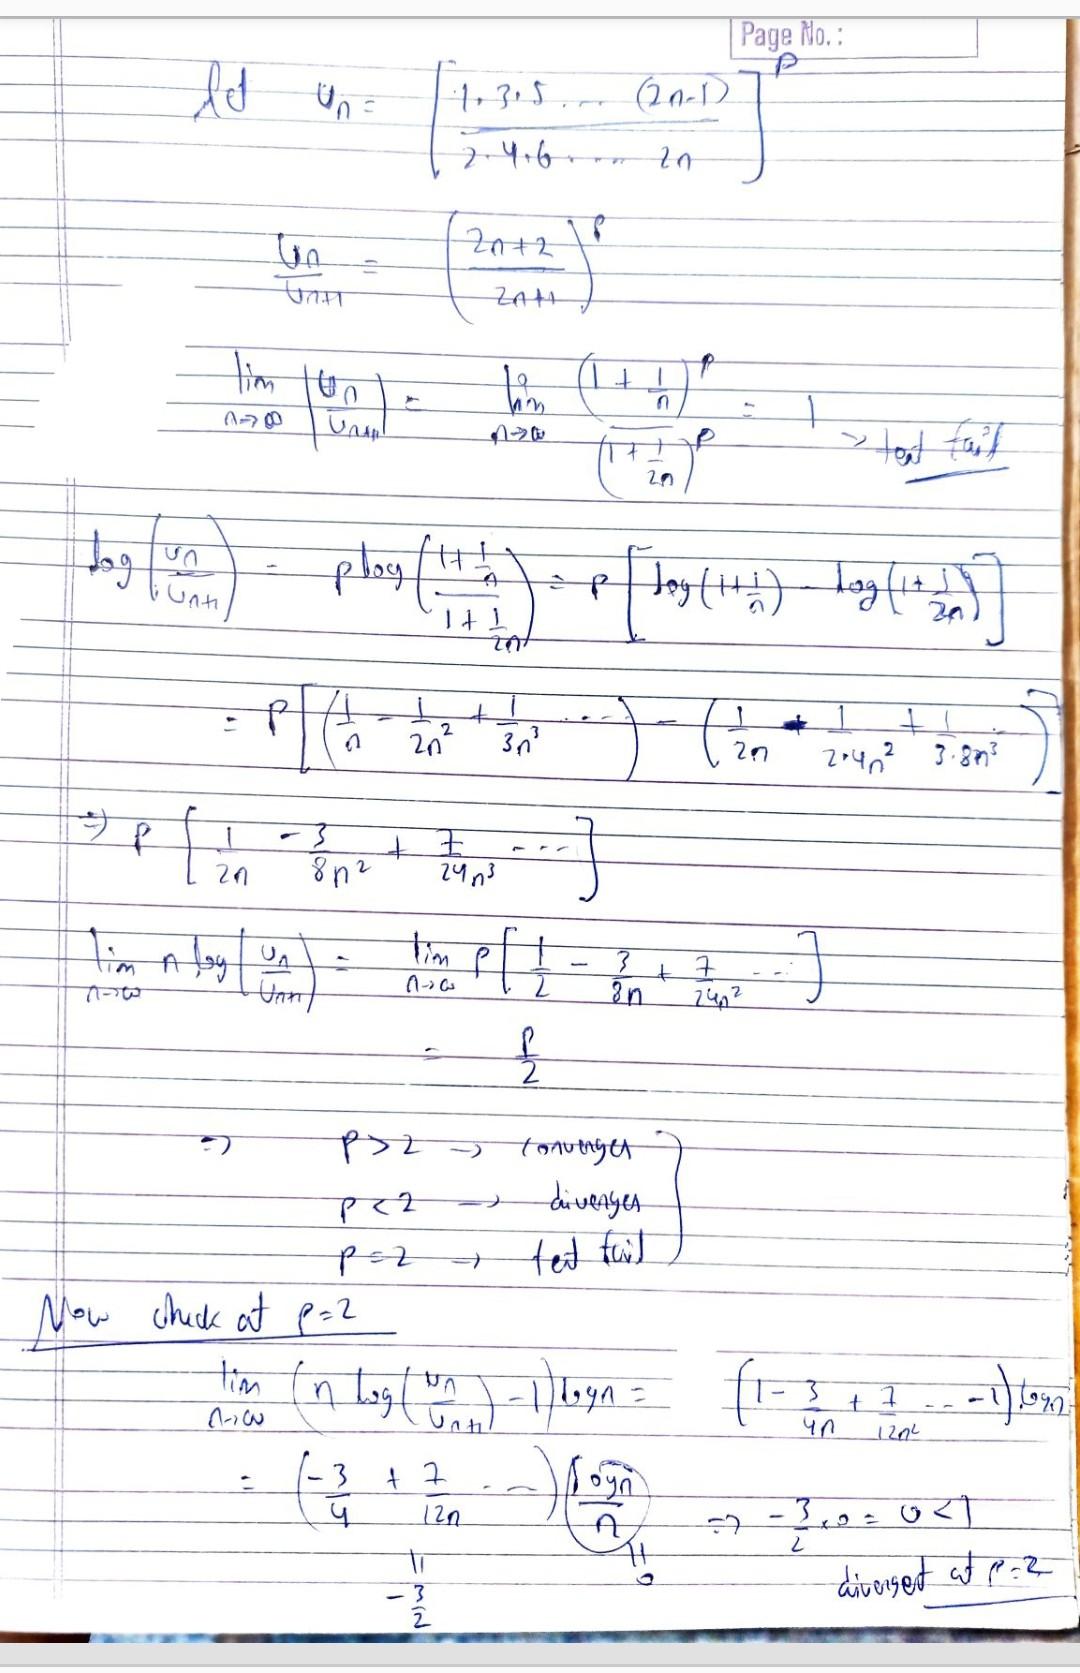 Page No. :
let u_n = [1.3.5 .... (2n-1) / 2.4.6 ..... 2n]^p
u_n/u_{n+1} = (2n+2 / 2n+1)^p
lim n→∞ |u_n/u_{n+1}| = lim n→∞ (1 + 1/n)^p / (1 + 1/2n)^p = 1 → test fail
log (u_n/u_{n+1}) = p log (1+1/n / 1+1/2n) = p [log(1+1/n) - log(1+1/2n)]
= p [(1/n - 1/2n² + 1/3n³ ....) - (1/2n - 1/2.4n² + 1/3.8n³ ..)]
⇒ p [1/2n - 3/8n² + 7/24n³ ----]
lim n→∞ n log (u_n/u_{n+1}) = lim n→∞ p [1/2 - 3/8n + 7/24n² ---]
= p/2
⇒ p > 2 → converges
p < 2 → diverges
p = 2 → test fail
Now check at p=2
lim n→∞ (n log (u_n/u_{n+1}) - 1) log n = (1 - 3/4n + 7/12n² .. -1) log n
= (-3/4 + 7/12n ---) (log n / n) ⇒ -3/2 × 0 = 0 < 1
|| ||
-3/2 0
diverget at p=2